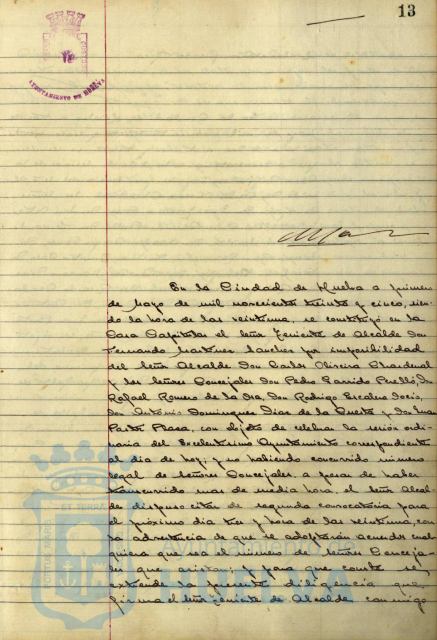 13
AYUNTAMIENTO DE HUELVA
En la Ciudad de Huelva a primero
de Mayo de mil novecientos treinta y cinco, sien-
do la hora de las veintiuna, se constituyó en la
Casa Capitular el Señor Teniente de Alcalde Don
Fernando Martinez Sanchez por imposibilidad
del Señor Alcalde Don Carlos Oliveira Chardenal
y los Señores Concejales Don Pedro Garrido Perelló, Don
Rafael Romero de la Osa, Don Rodrigo Escalera Socis,
Don Antonio Dominguez Diaz de la Cuesta y Don Juan
Plasa, con objeto de celebrar la sesión ordi-
naria del Excelentisimo Ayuntamiento correspondiente
al dia de hoy; y no habiendo concurrido número
legal de Señores Concejales a pesar de haber
transcurrido mas de media hora, el Señor Alcal-
de dispuso citar de segunda convocatoria para
el próximo dia tres y hora de las veintiuna, con
la advertencia de que se adoptarán acuerdos cual-
quiera que sea el número de Señores Conceja-
les que asistan; y para que conste se
extiende la presente diligencia que
firma el Señor Teniente de Alcalde conmigo